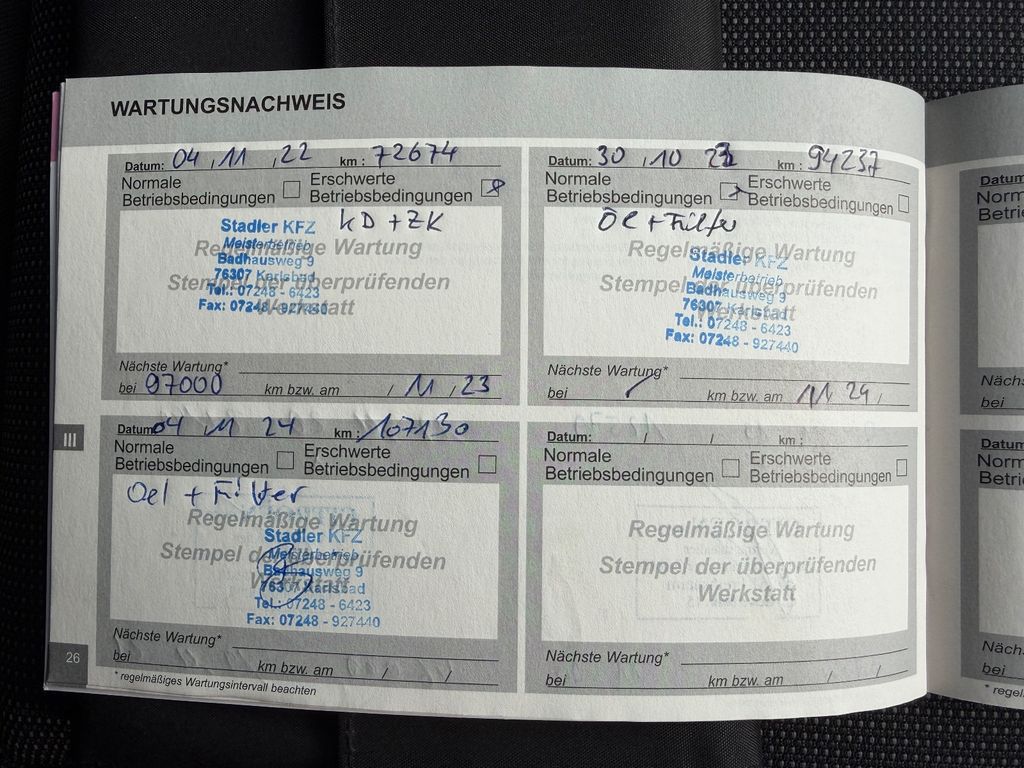 WARTUNGSNACHWEIS
Datum: 04 / 11 / 22 km : 72674
Normale Betriebsbedingungen
Erschwerte Betriebsbedingungen
KD + ZK
Regelmäßige Wartung
Stempel der überprüfenden
Werkstatt
Stadler KFZ
Meisterbetrieb
Badhausweg 9
76307 Karlsbad
Tel.: 07248 - 6423
Fax: 07248 - 927440
Nächste Wartung*
bei 97000 km bzw. am / 11 / 23
Datum: 30 / 10 23 km : 94237
Normale Betriebsbedingungen
Erschwerte Betriebsbedingungen
Öl + Filter
Regelmäßige Wartung
Stempel der überprüfenden
Werkstatt
Stadler KFZ
Meisterbetrieb
Badhausweg 9
76307 Karlsbad
Tel.: 07248 - 6423
Fax: 07248 - 927440
Nächste Wartung*
bei / km bzw. am 11 / 24 /
Datum: 04 / 11 24 km : 107130
Normale Betriebsbedingungen
Erschwerte Betriebsbedingungen
Oel + Filter
Regelmäßige Wartung
Stempel der überprüfenden
Werkstatt
Stadler KFZ
Meisterbetrieb
Badhausweg 9
76307 Karlsbad
Tel.: 07248 - 6423
Fax: 07248 - 927440
Nächste Wartung*
bei km bzw. am / /
Datum: / / km :
Normale Betriebsbedingungen
Erschwerte Betriebsbedingungen
Regelmäßige Wartung
Stempel der überprüfenden
Werkstatt
Nächste Wartung*
bei km bzw. am / /
* regelmäßiges Wartungsintervall beachten
III
26
Datum
Norm
Betri
Nächs
bei
Datum
Norm
Betri
Nächs
bei
* regel